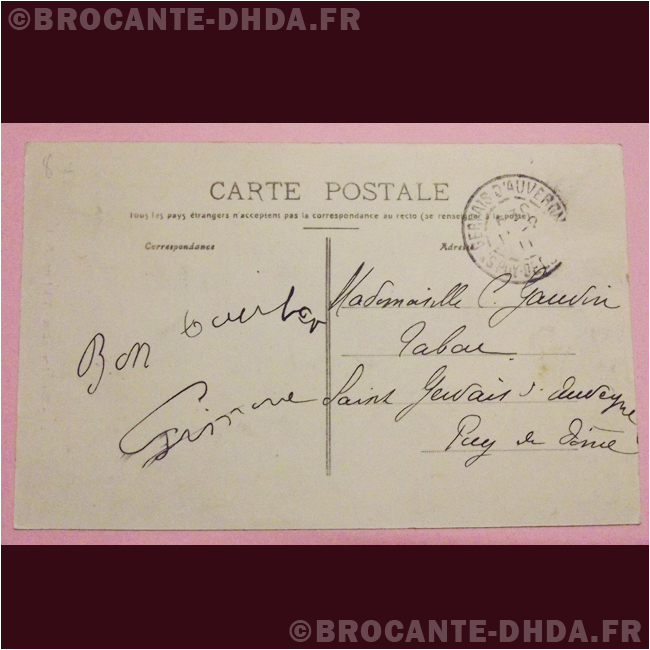 ©BROCANTE-DHDA.FR
8
CARTE POSTALE
Tous les pays étrangers n'acceptent pas la correspondance au recto (se renseigner à la poste)
Correspondance
Adresse
GERVAIS D'AUVERGN
PUY-DE-
Mademoiselle C. Gaudin
Tabac
Saint Gervais d. Auvergne
Puy de Dôme
Bon
©BROCANTE-DHDA.FR